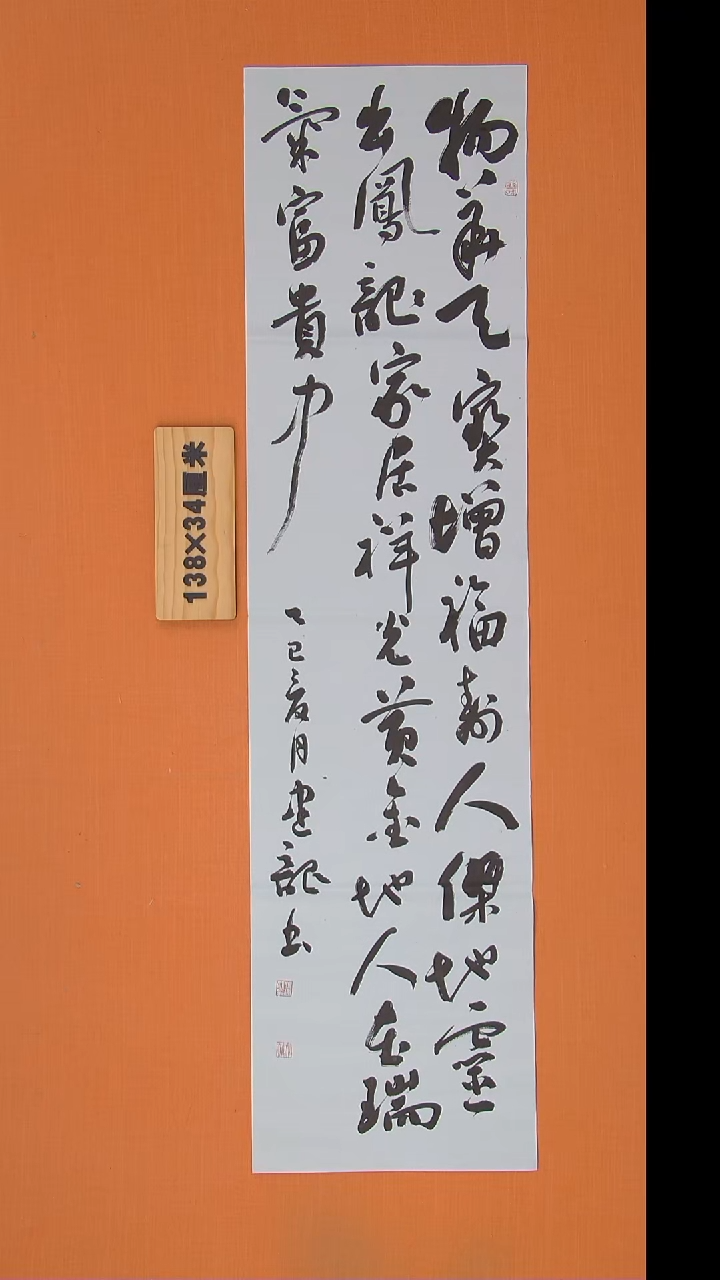 物華天寶增福壽人傑地靈
出鳳龍家居祥光黃金地人在瑞
氣富貴中
乙巳夏月建龍書
138×34厘米